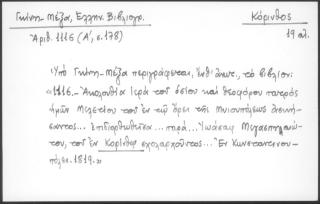 Γκίνη - Μέξα, Ελλην. Βιβλιογρ.
Κόρινθος
Ἀριθ. 1116 (Α', σ. 178)
19 αἰ.
Ὑπό Γκίνη - Μέξα περιγράφεται, ἔνθ' ἀνωτ., τό βιβλίον:
«1116. - Ἀκολουθία Ἱερά τοῦ ὁσίου καί θεοφόρου πατρός
ἡμῶν Μελετίου τοῦ ἐν τῷ ὄρει τῆς Μυουπόλεως ἀσκή-
σαντος... ἐπιδιορθωθεῖσα... παρά... Ἰωάσαφ
του, τοῦ ἐν Κορίνθῳ σχολαρχοῦντος... Ἐν Κωνσταντινου-
πόλει. 1819.»